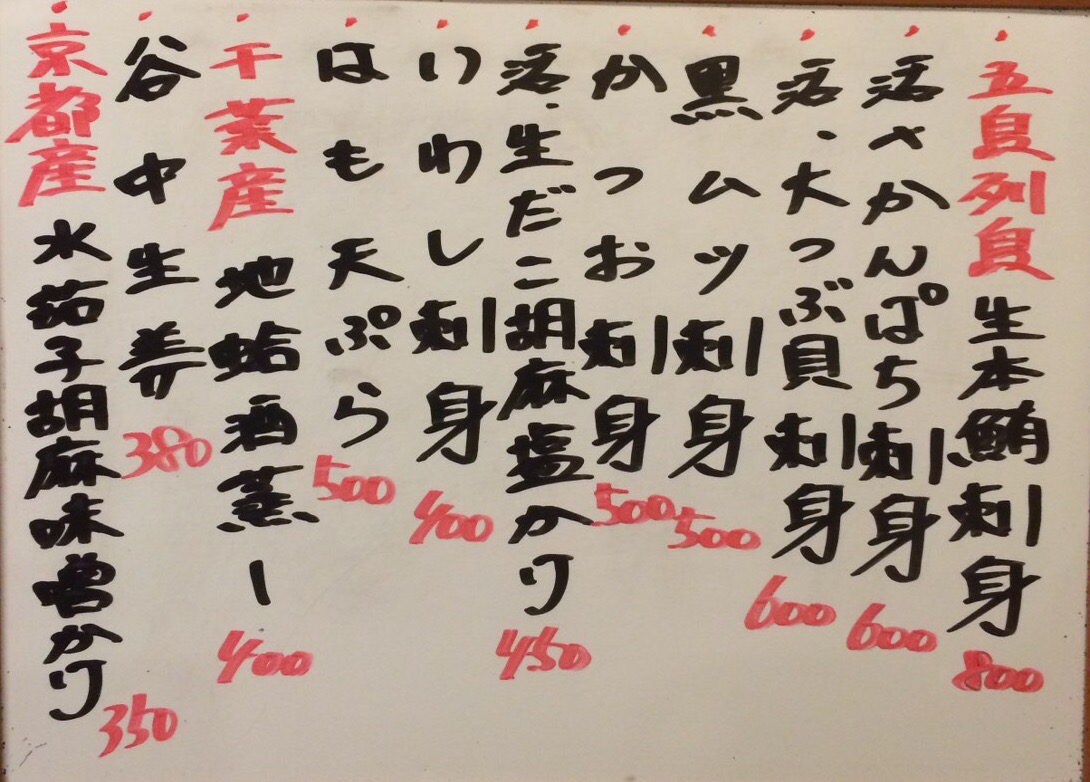 五島列島 生本鮪刺身 800
活〆かんぱち刺身 600
活、大つぶ貝刺身 600
黒ムツ刺身 500
かつお刺身 500
活、生だこ胡麻塩かり 450
いわし刺身 400
はも天ぷら 500
千葉産 地蛤酒蒸し 400
谷中生姜 380
京都産 水茄子胡麻味噌かり 350